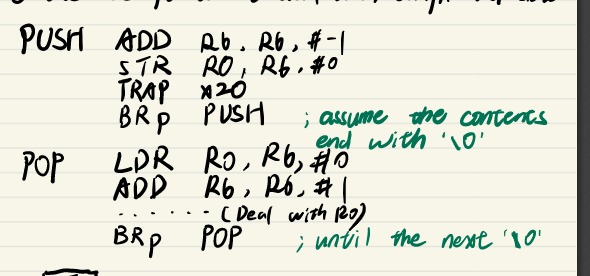 PUSH ADD R6, R6, #-1
STR R0, R6, #0
TRAP x20
BRp PUSH ; assume the contents
end with '\0'
POP LDR R0, R6, #0
ADD R6, R6, #1
....... (Deal with R0)
BRp POP ; until the next '\0'